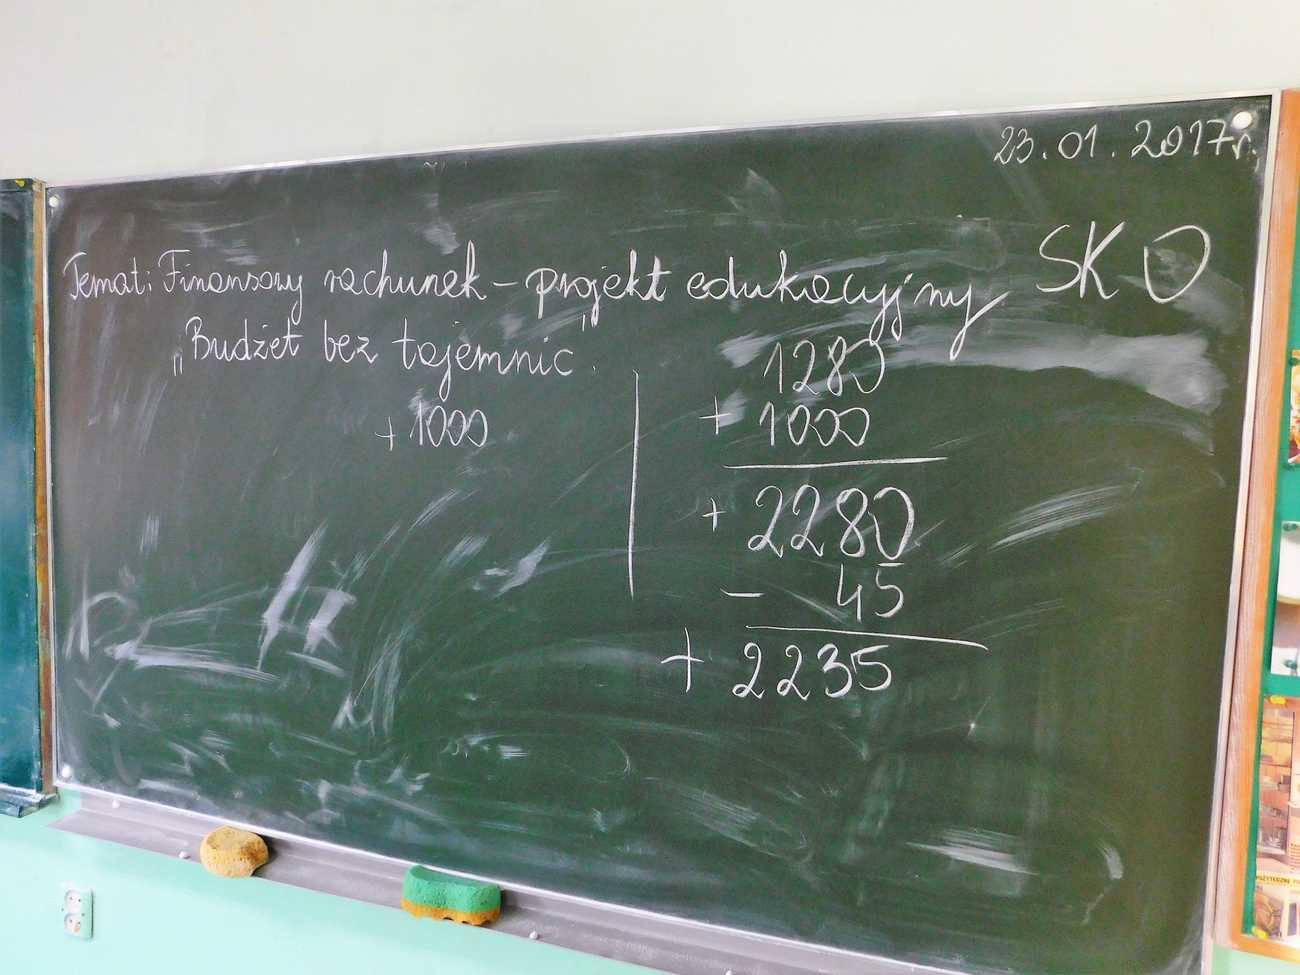 23.01.2017r.
SKO
Temat: Finansowy rachunek – projekt edukacyjny
„Budżet bez tajemnic".
+1000
1280
+ 1000
+ 2280
- 45
+ 2235